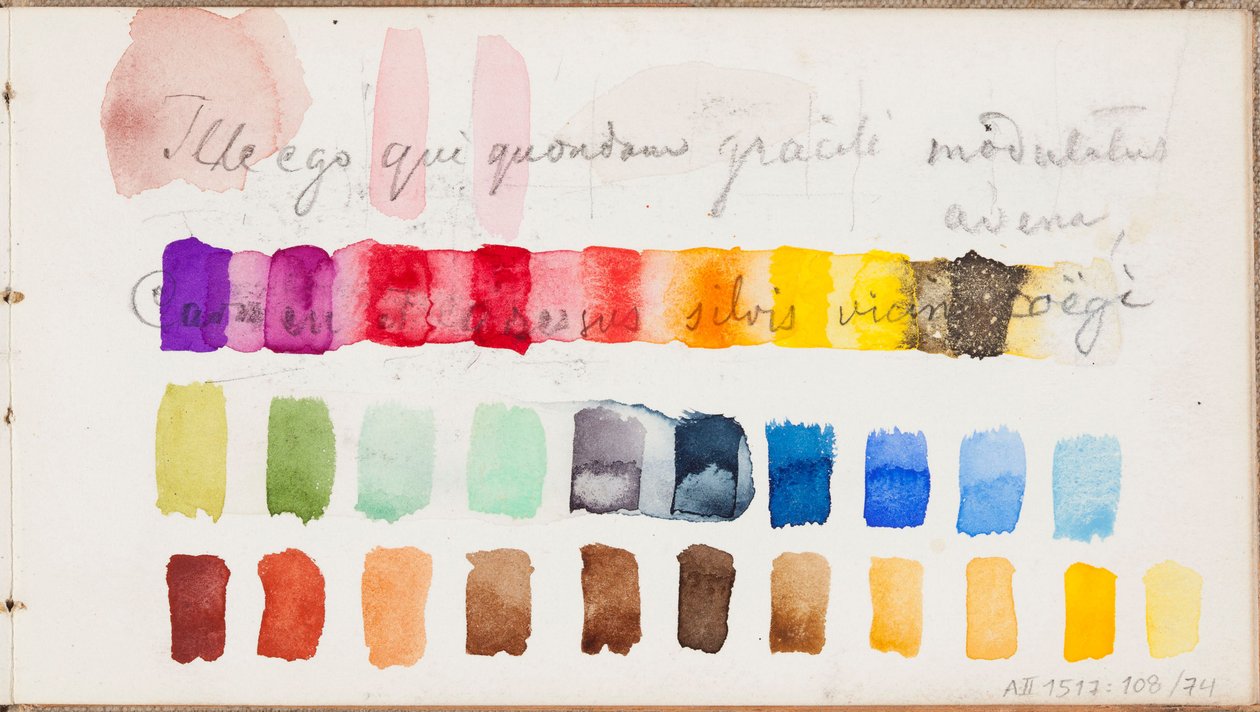 Ille ego qui quondam gracili modulatus
avena,
Carmen et egressus silvis vicina coëgi
AII 1517:108/74